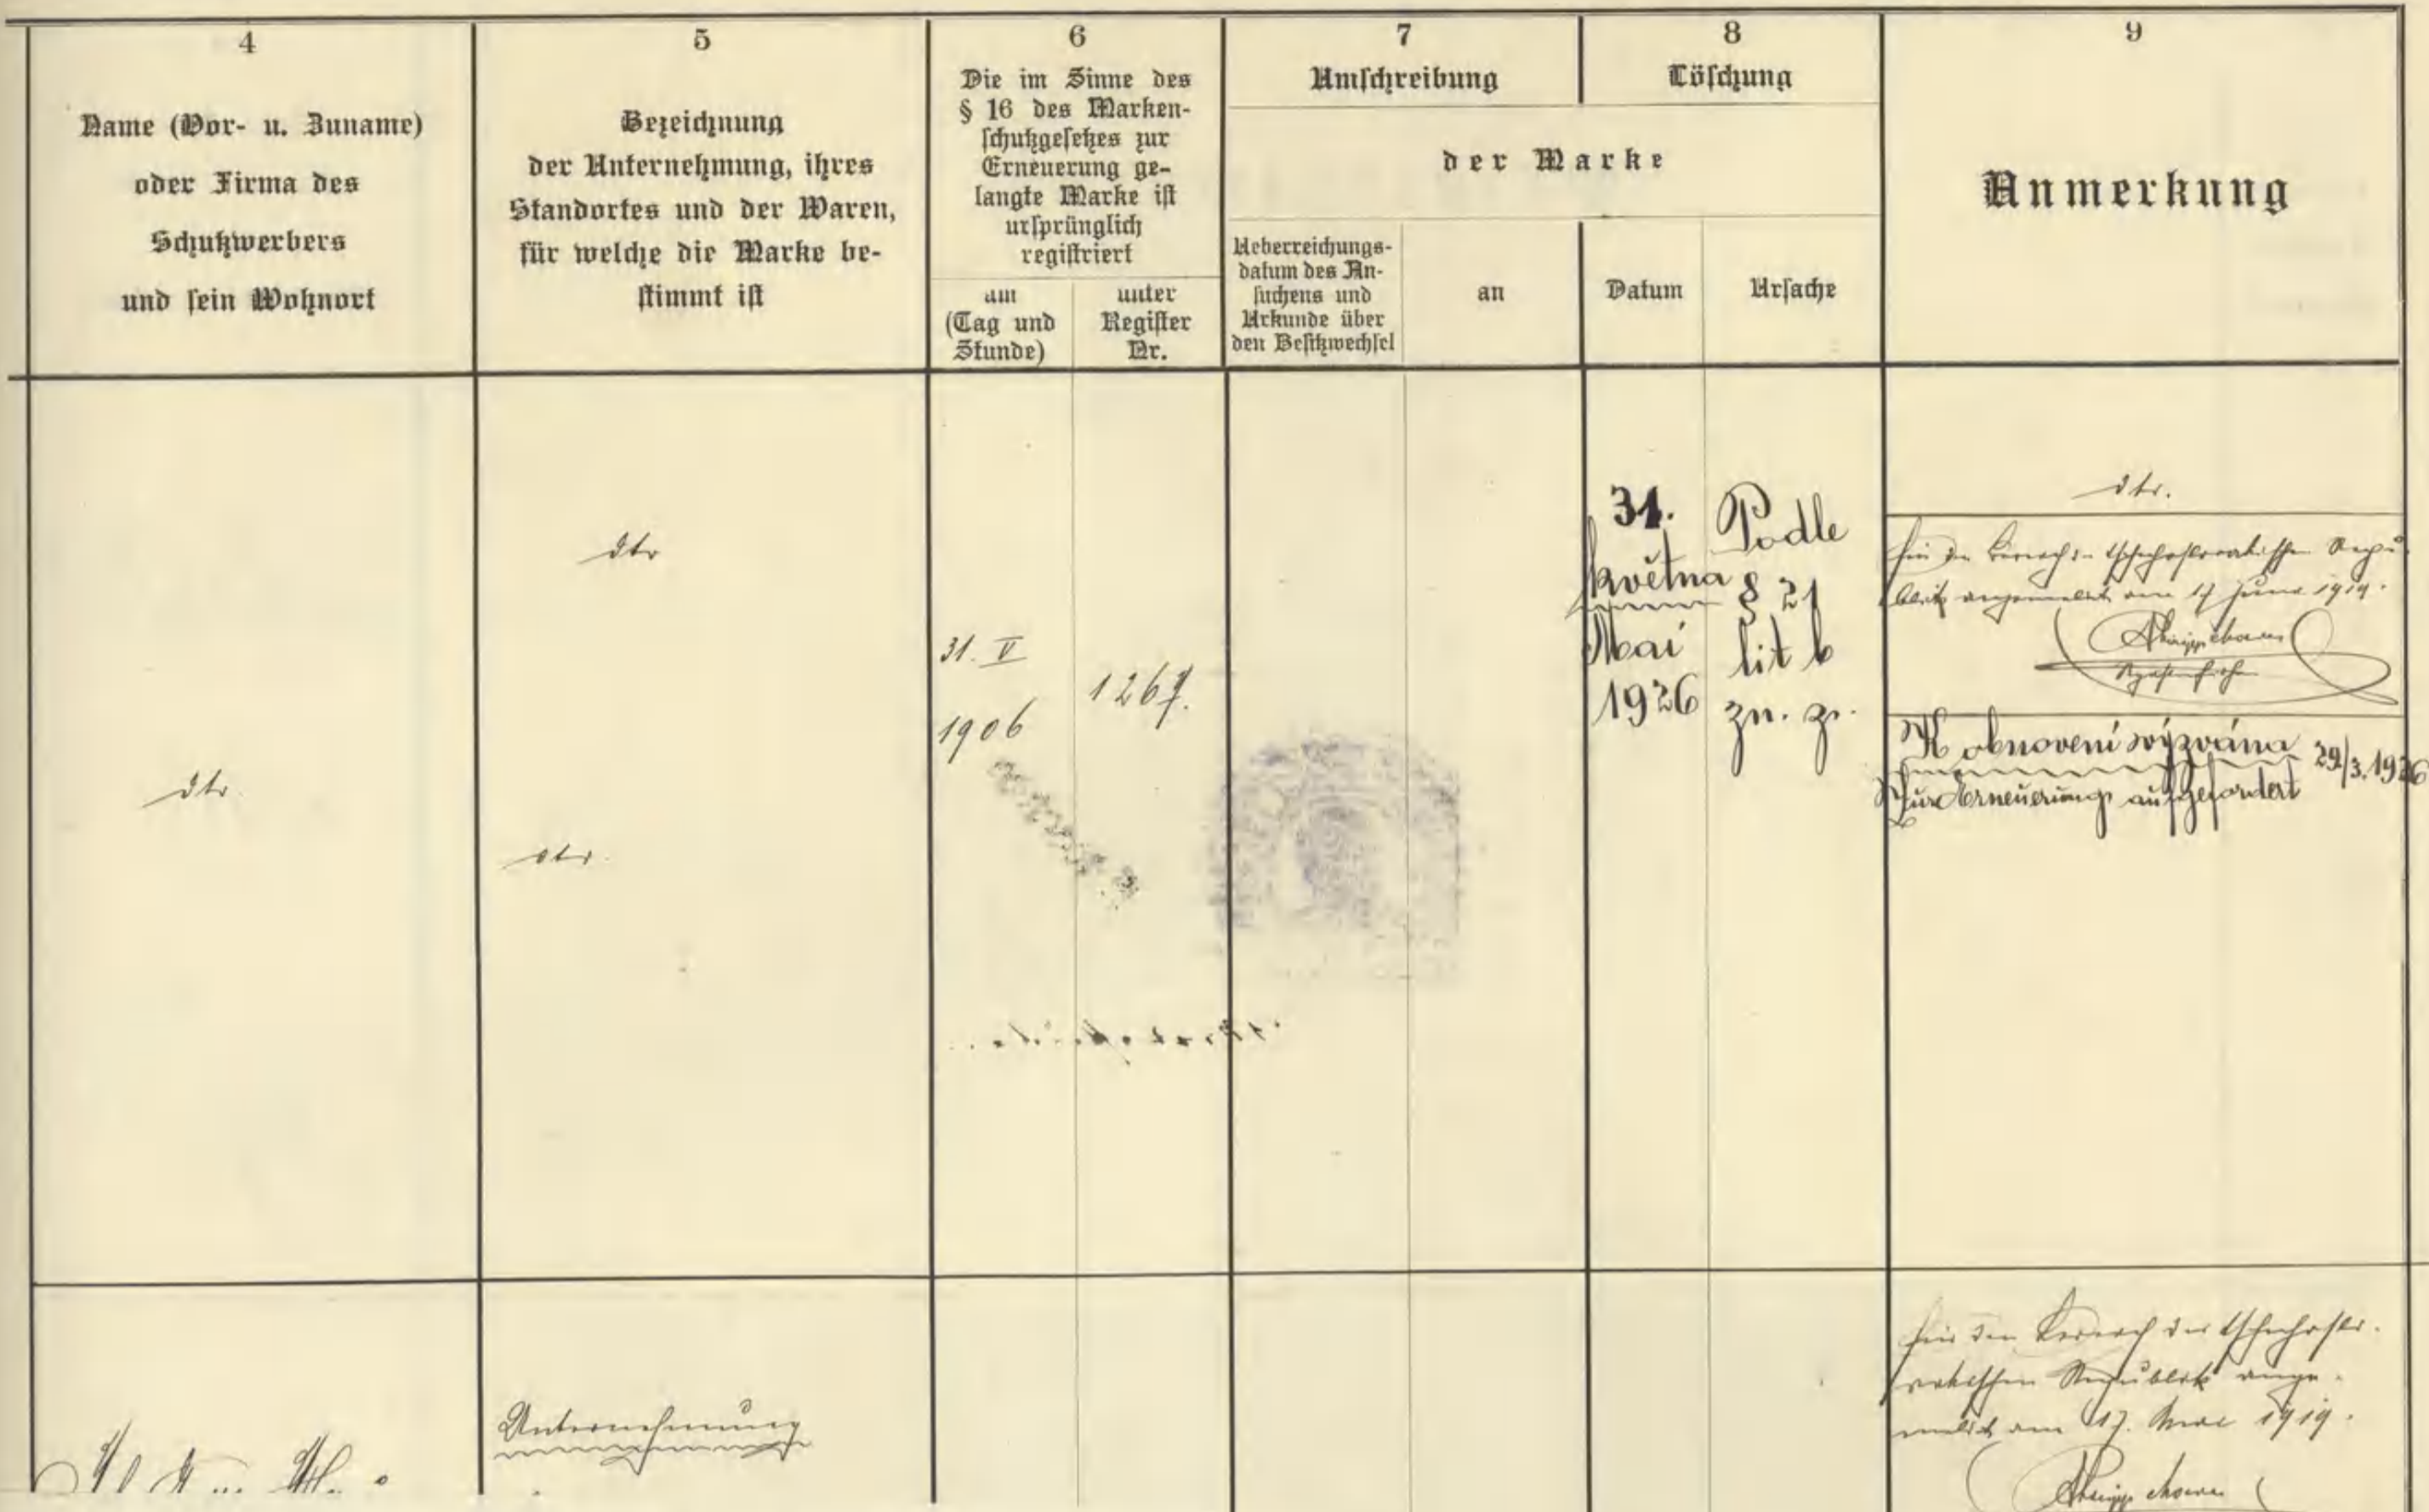 4
Name (Vor- u. Zuname)
oder Firma des
Schutzwerbers
und sein Wohnort
5
Bezeichnung
der Unternehmung, ihres
Standortes und der Waren,
für welche die Marke be-
stimmt ist
6
Die im Sinne des
§ 16 des Marken-
schutzgesetzes zur
Erneuerung ge-
langte Marke ist
ursprünglich
registriert
am
(Tag und
Stunde)
unter
Register
Nr.
7
Umschreibung
8
Löschung
der Marke
Ueberreichungs-
datum des An-
suchens und
Urkunde über
den Besitzwechsel
an
Datum
Ursache
9
Anmerkung
dto.
dto
dto.
31. V
1906
1267.
31.
května
Mai
1926
Podle
§ 21
lit b
zn. z.
dto.
für den Bereich der tschechoslovakischen Repu-
blik angemeldet am 17 Juni 1919.
K obnovení vyzvána 29/3. 1926
Zur Erneuerung aufgefordert
Unternehmung
für den Bereich der tschechoslo-
vakischen Republik ange-
meldet am 17. 1919.